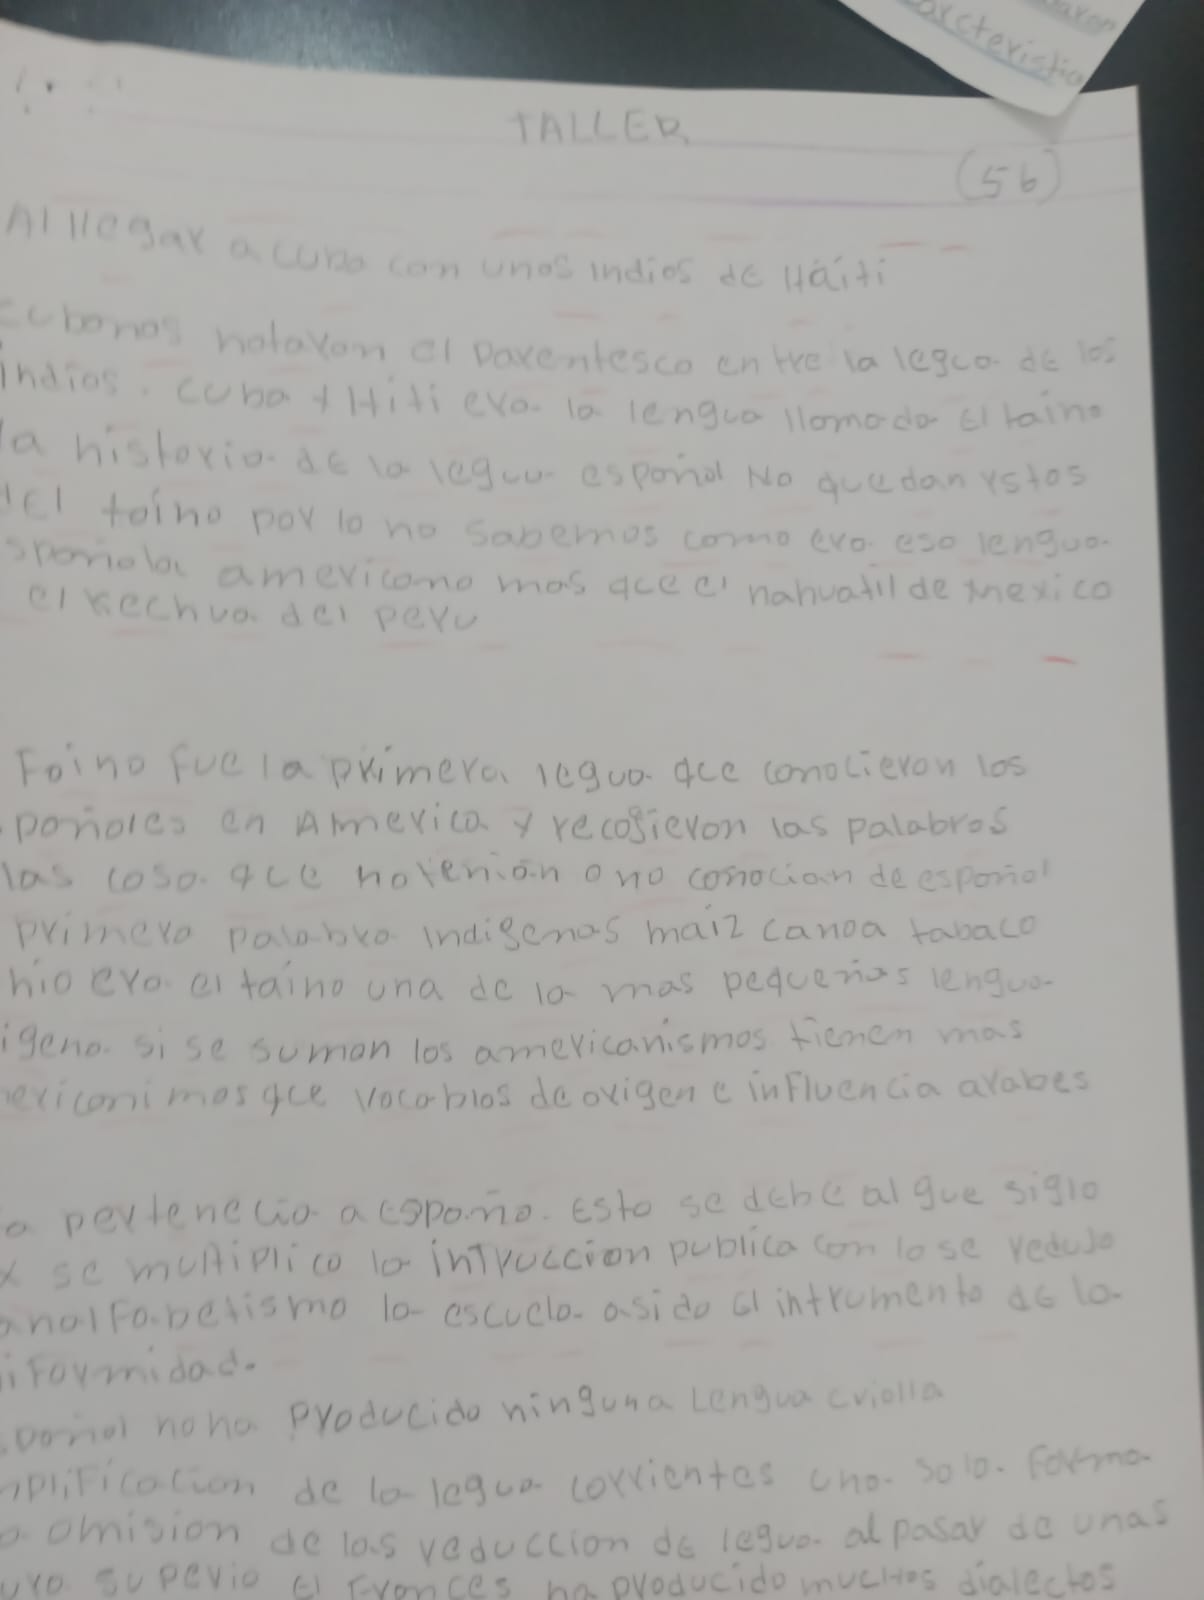 arcteristic
TALLER
(56)
Al llegar a cuba con unos indios de Háiti
cubanos notaron el parentesco entre la legua de los
indios. cuba y Hiti era la lengua llamada el taino
la historia de la legua español No quedan rstos
del taino por lo no sabemos como era esa lengua
spañola americano mas qce el nahuatil de mexico
el kechua del peru
Foino fue la primera legua qce conocieron los
pañoles en America y recogieron las palabras
las cosa qce notenian o no conocian de español
primera palabra indigenas maiz canoa tabaco
hio era el taino una de la mas pequeñas lengua
igena si se suman los americanismos tienen mas
ericanimos qce vocablos de origen e influencia arabes
a pertenecia a españa. Esto se debe al gue siglo
x se multiplico la intruccion publica con lo se redujo
analfabetismo la escuela asido el intrumento de la
iformidad.
pañol no ha producido ninguna Lengua criolla
mplificacion de la legua corrientes una sola forma
a omision de las reduccion de legua al pasar de unas
uro superio el Frances ha producido muchos dialectos